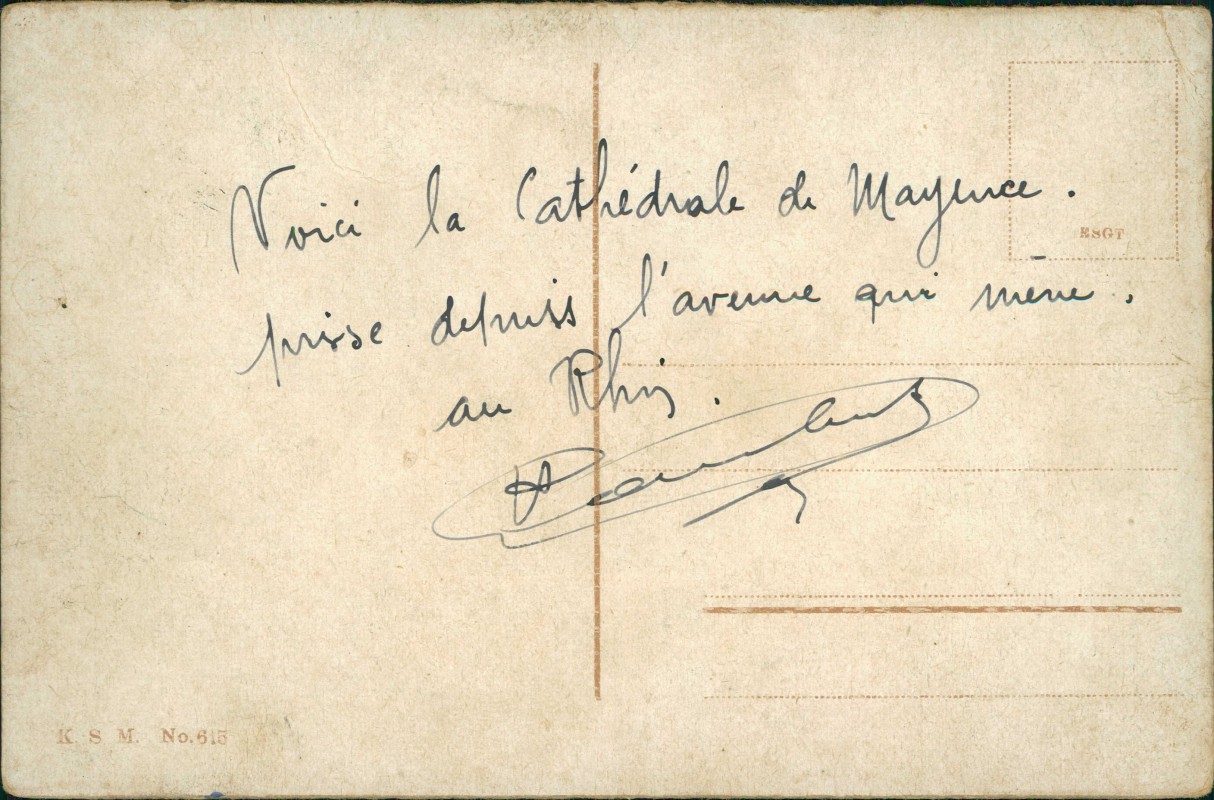 Voici la Cathédrale de Mayence.
prise depuis l'avenue qui mène.
au Rhin.
ESGT
K S M. No.615